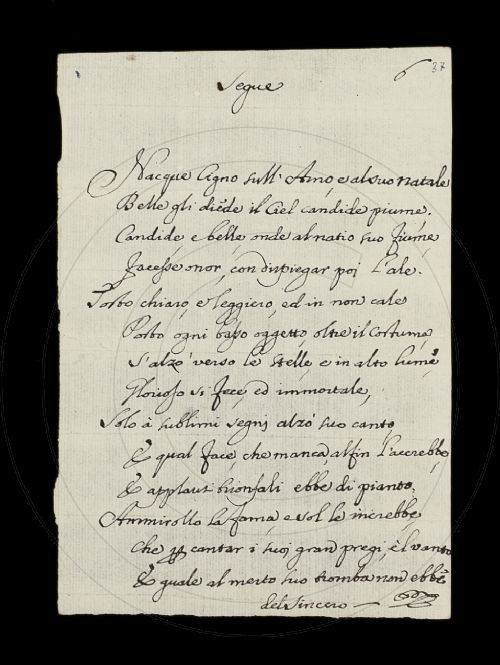 6 37
Segue
Nacque Cigno sull' Arno, e al suo natale
Belle gli diede il Ciel candide piume.
Candide, e belle, onde al natio suo fiume
Facesse onor, con dispiegar poi l'ale.
Tosto chiaro, e leggiero, ed in non cale
Posto ogni basso oggetto, oltre il costume
S'alzò verso le stelle, e in alto lume
Glorioso si fece, ed immortale,
Solo à sublimi segni alzò suo canto,
E qual face, che manca, alfin l'accrebbe,
E applausi trionfali ebbe di pianto.
Ammirollo la fama, e sol le increbbe,
Che per cantar i suoi gran pregi, e'l vanto
E quale al merto suo tromba non ebbe
del Sincero